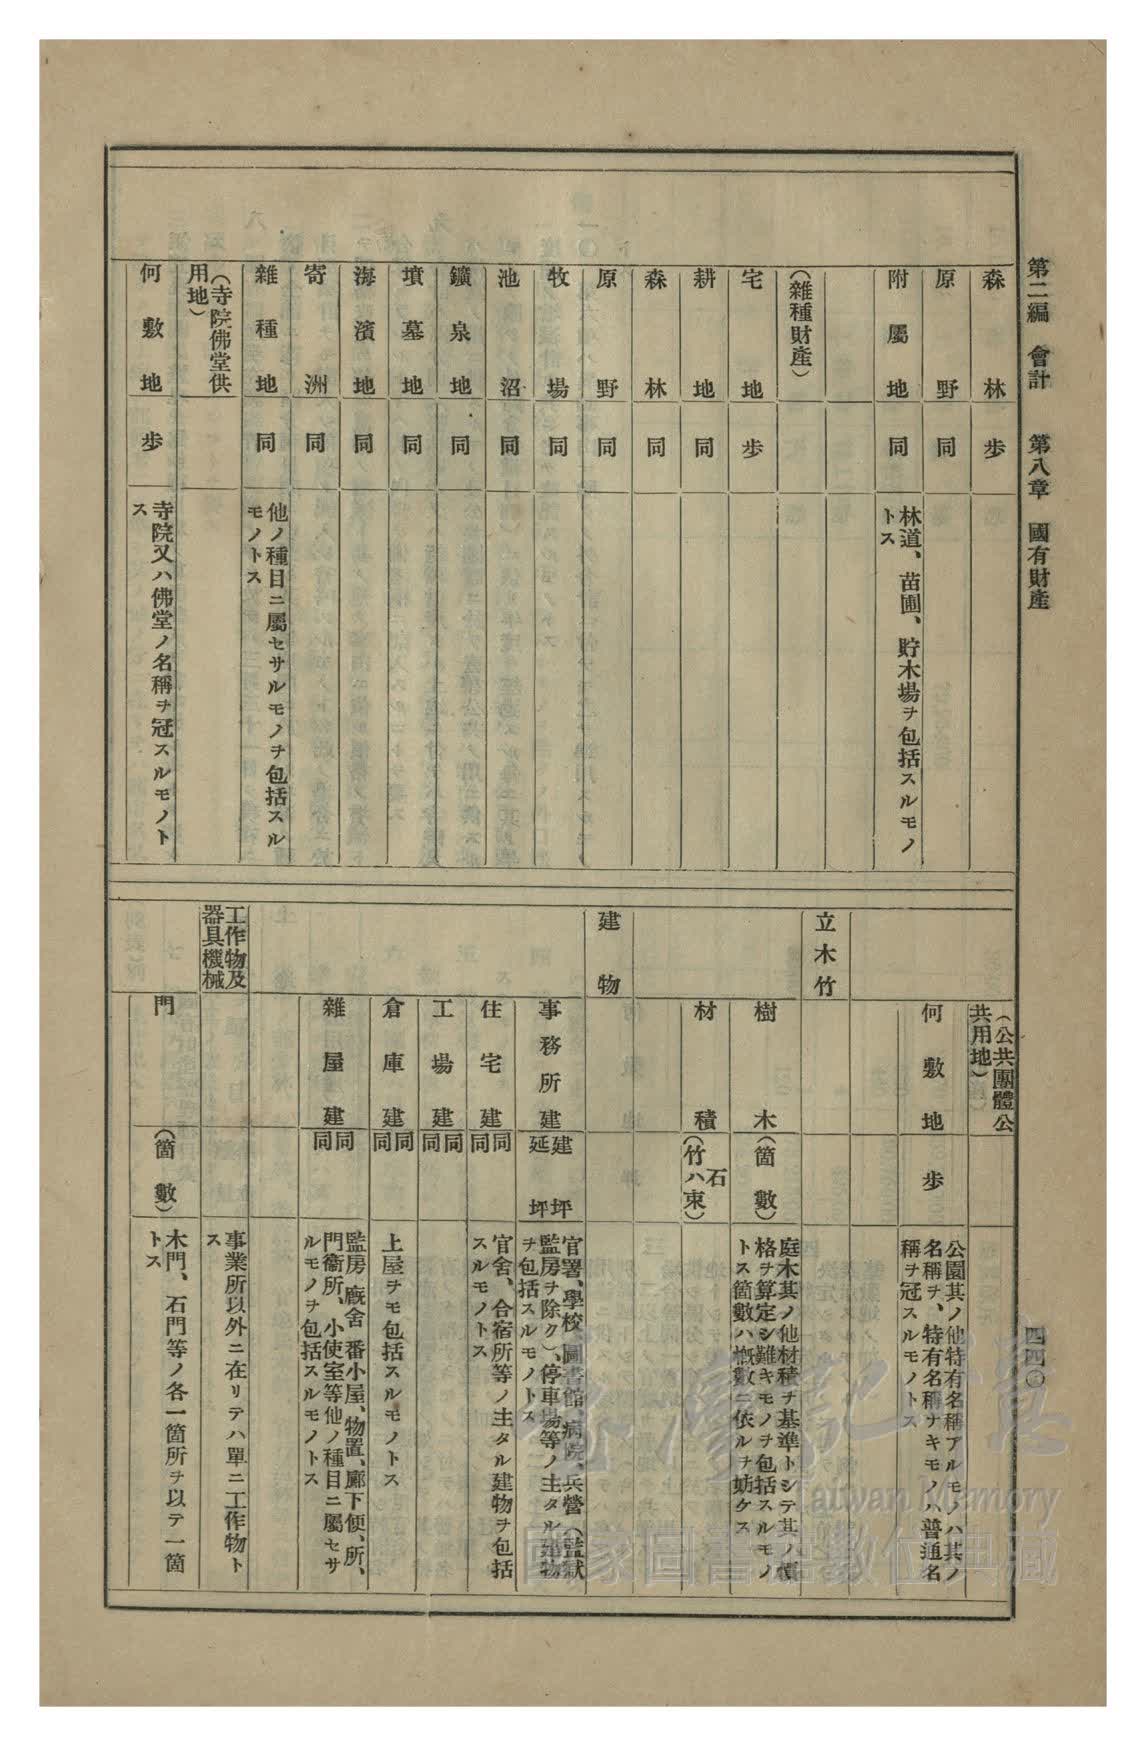 第二編　會計　第八章　國有財產
四四〇
森林　步
原野　同
附屬地　同　林道、苗圃、貯木場ヲ包括スルモノ
トス
（雜種財產）
宅地　步
耕地　同
森林　同
原野　同
牧場　同
池沼　同
鑛泉地　同
墳墓地　同
海濱地　同
寄洲　同
雜種地　同　他ノ種目ニ屬セサルモノヲ包括スル
モノトス
（寺院佛堂供
用地）
何敷地　步　寺院又ハ佛堂ノ名稱ヲ冠スルモノト
ス
（公共團體公
共用地）
何敷地　步　公園其ノ他特有名稱アルモノハ其ノ
名稱ヲ、特有名稱ナキモノハ普通名
稱ヲ冠スルモノトス
立木竹
樹木　（箇數）　庭木其ノ他材積ヲ基準トシテ其ノ價
格ヲ算定シ難キモノヲ包括スルモノ
トス箇數ハ槪數ニ依ルヲ妨ケス
材積　石
（竹ハ束）
建物
事務所建　建坪
延坪　官署、學校、圖書館、病院、兵營（監獄
監房ヲ除ク）、停車場等ノ主タル建物
ヲ包括スルモノトス
住宅建　同
同　官舍、合宿所等ノ主タル建物ヲ包括
スルモノトス
工場建　同
同
倉庫建　同
同　上屋ヲモ包括スルモノトス
雜屋建　同
同　監房、廐舍、番小屋、物置、廊下、便所、
門衞所、小使室等他ノ種目ニ屬セサ
ルモノヲ包括スルモノトス
工作物及
器具機械　事業所以外ニ在リテハ單ニ工作物ト
ス
門　（箇數）　木門、石門等ノ各一箇所ヲ以テ一箇
トス
臺灣記憶
Taiwan Memory
國家圖書館數位典藏